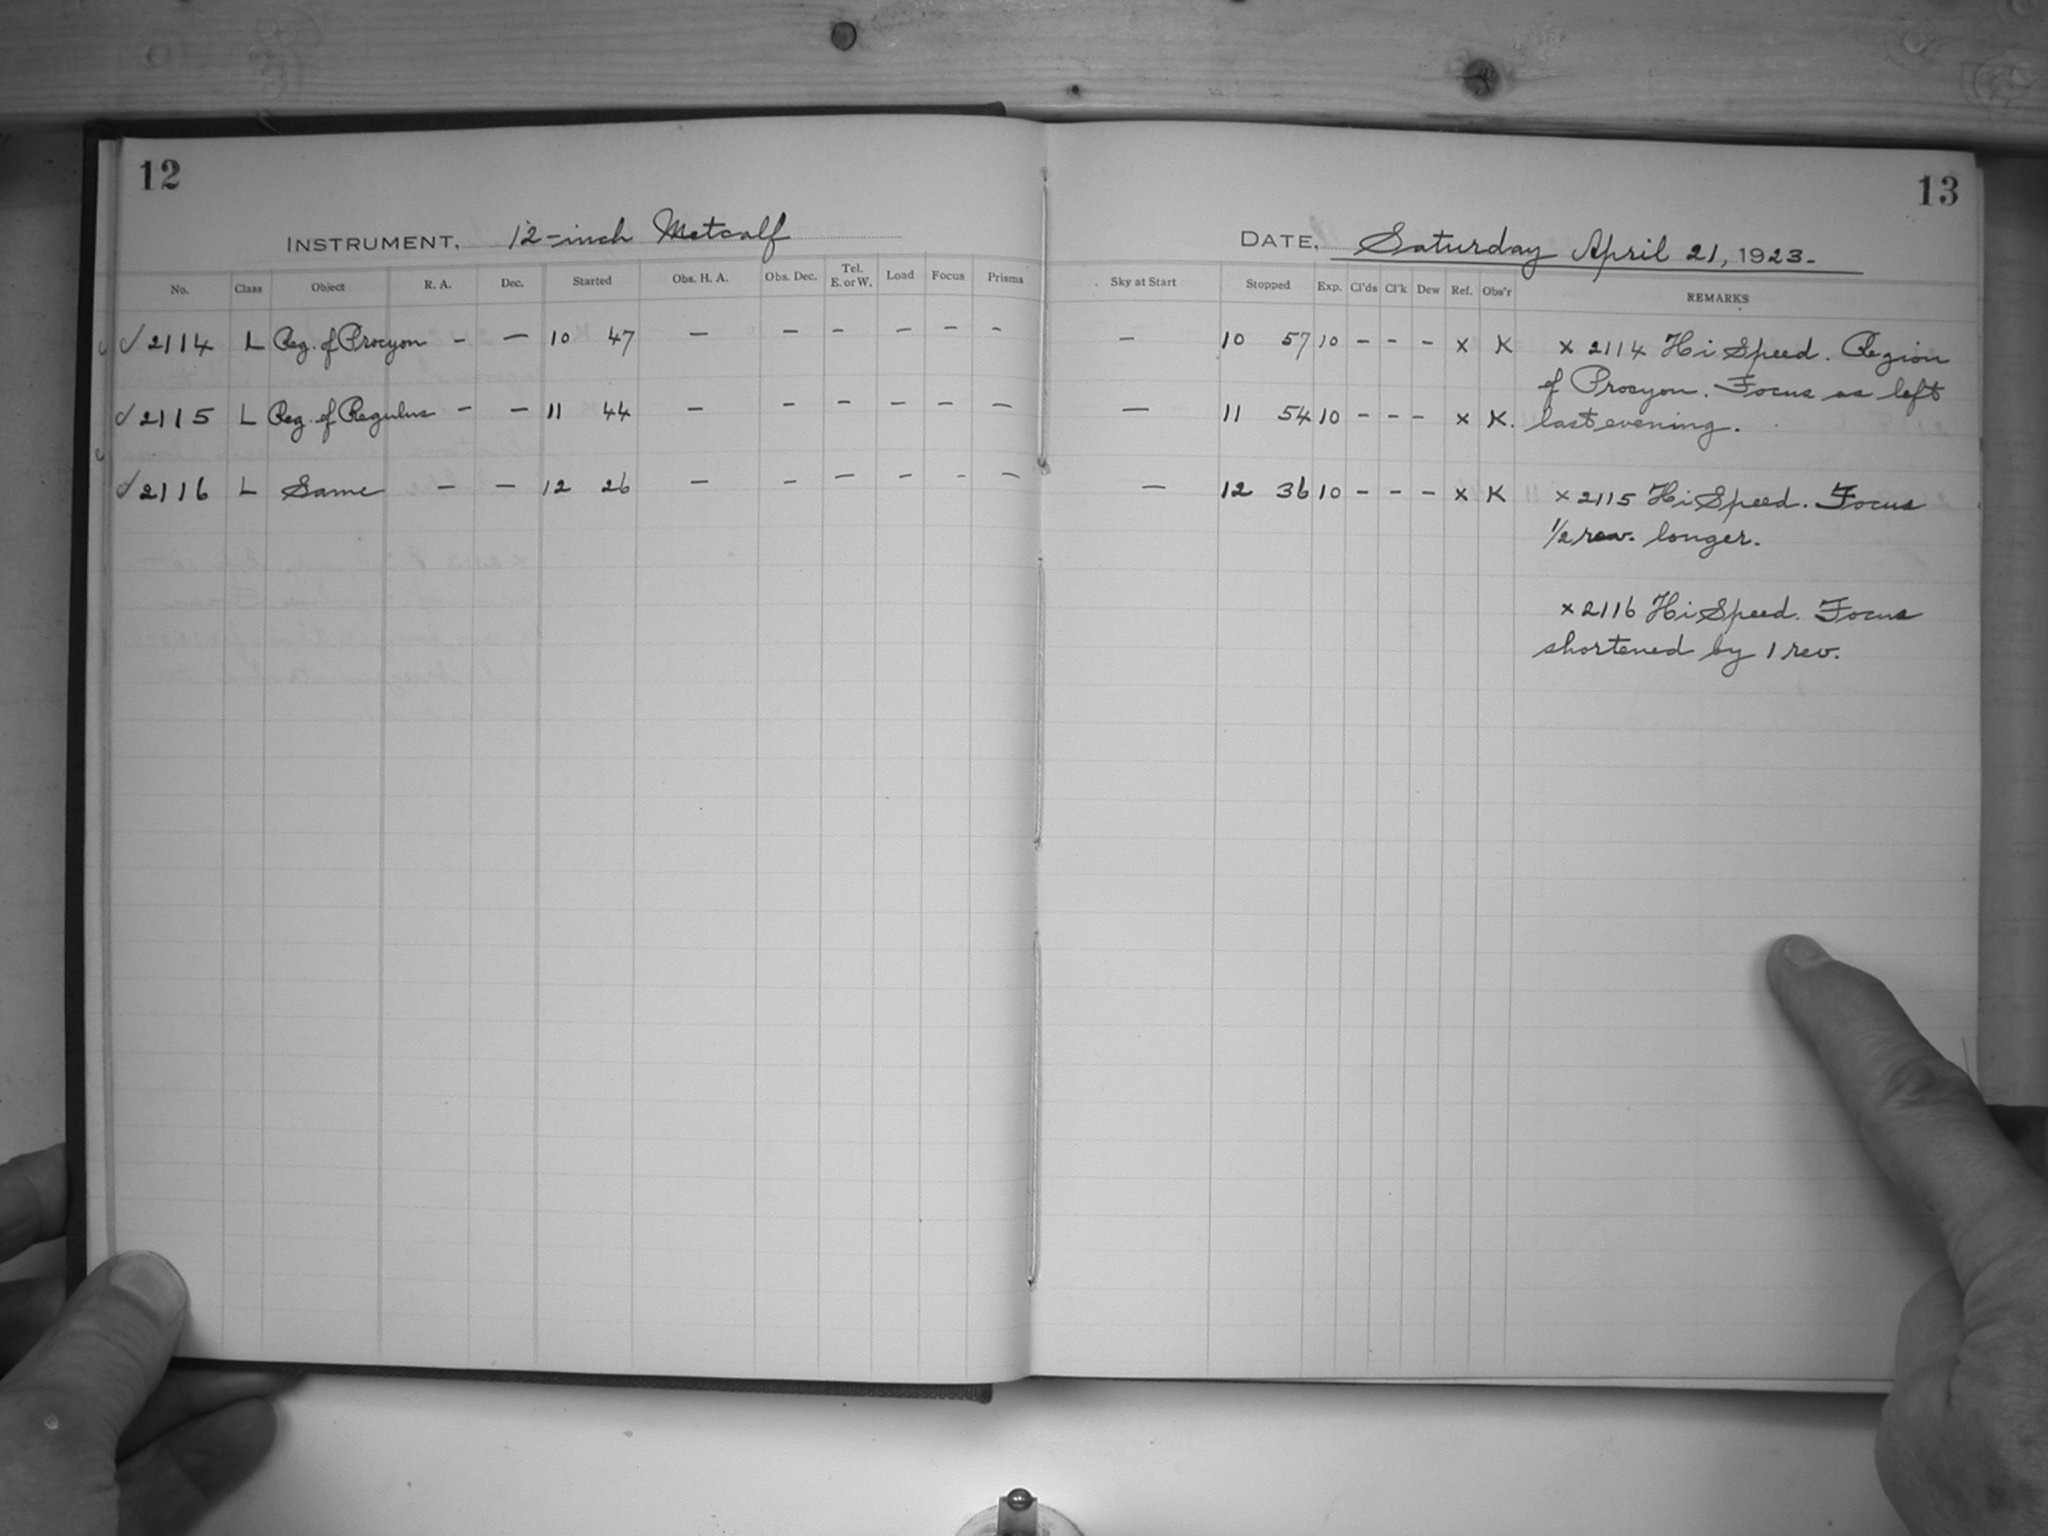 12
INSTRUMENT, 12-inch Metcalf
No. Class Object R. A. Dec. Started Obs. H. A. Obs. Dec. Tel. E. or W. Load Focus Prisms
✓ 2114 L Reg. of Procyon - - 10 47 - - - - - -
✓ 2115 L Reg. of Regulus - - 11 44 - - - - - -
✓ 2116 L Same - - 12 26 - - - - - -
13
DATE, Saturday April 21, 1923-
Sky at Start Stopped Exp. Cl'ds Cl'k Dew Ref. Obs'r REMARKS
- 10 57 10 - - - x K x 2114 Hi Speed. Region
of Procyon. Focus as left
- 11 54 10 - - - x K. last evening.
- 12 36 10 - - - x K x 2115 Hi Speed. Focus
1/2 rev. longer.
x 2116 Hi Speed. Focus
shortened by 1 rev.